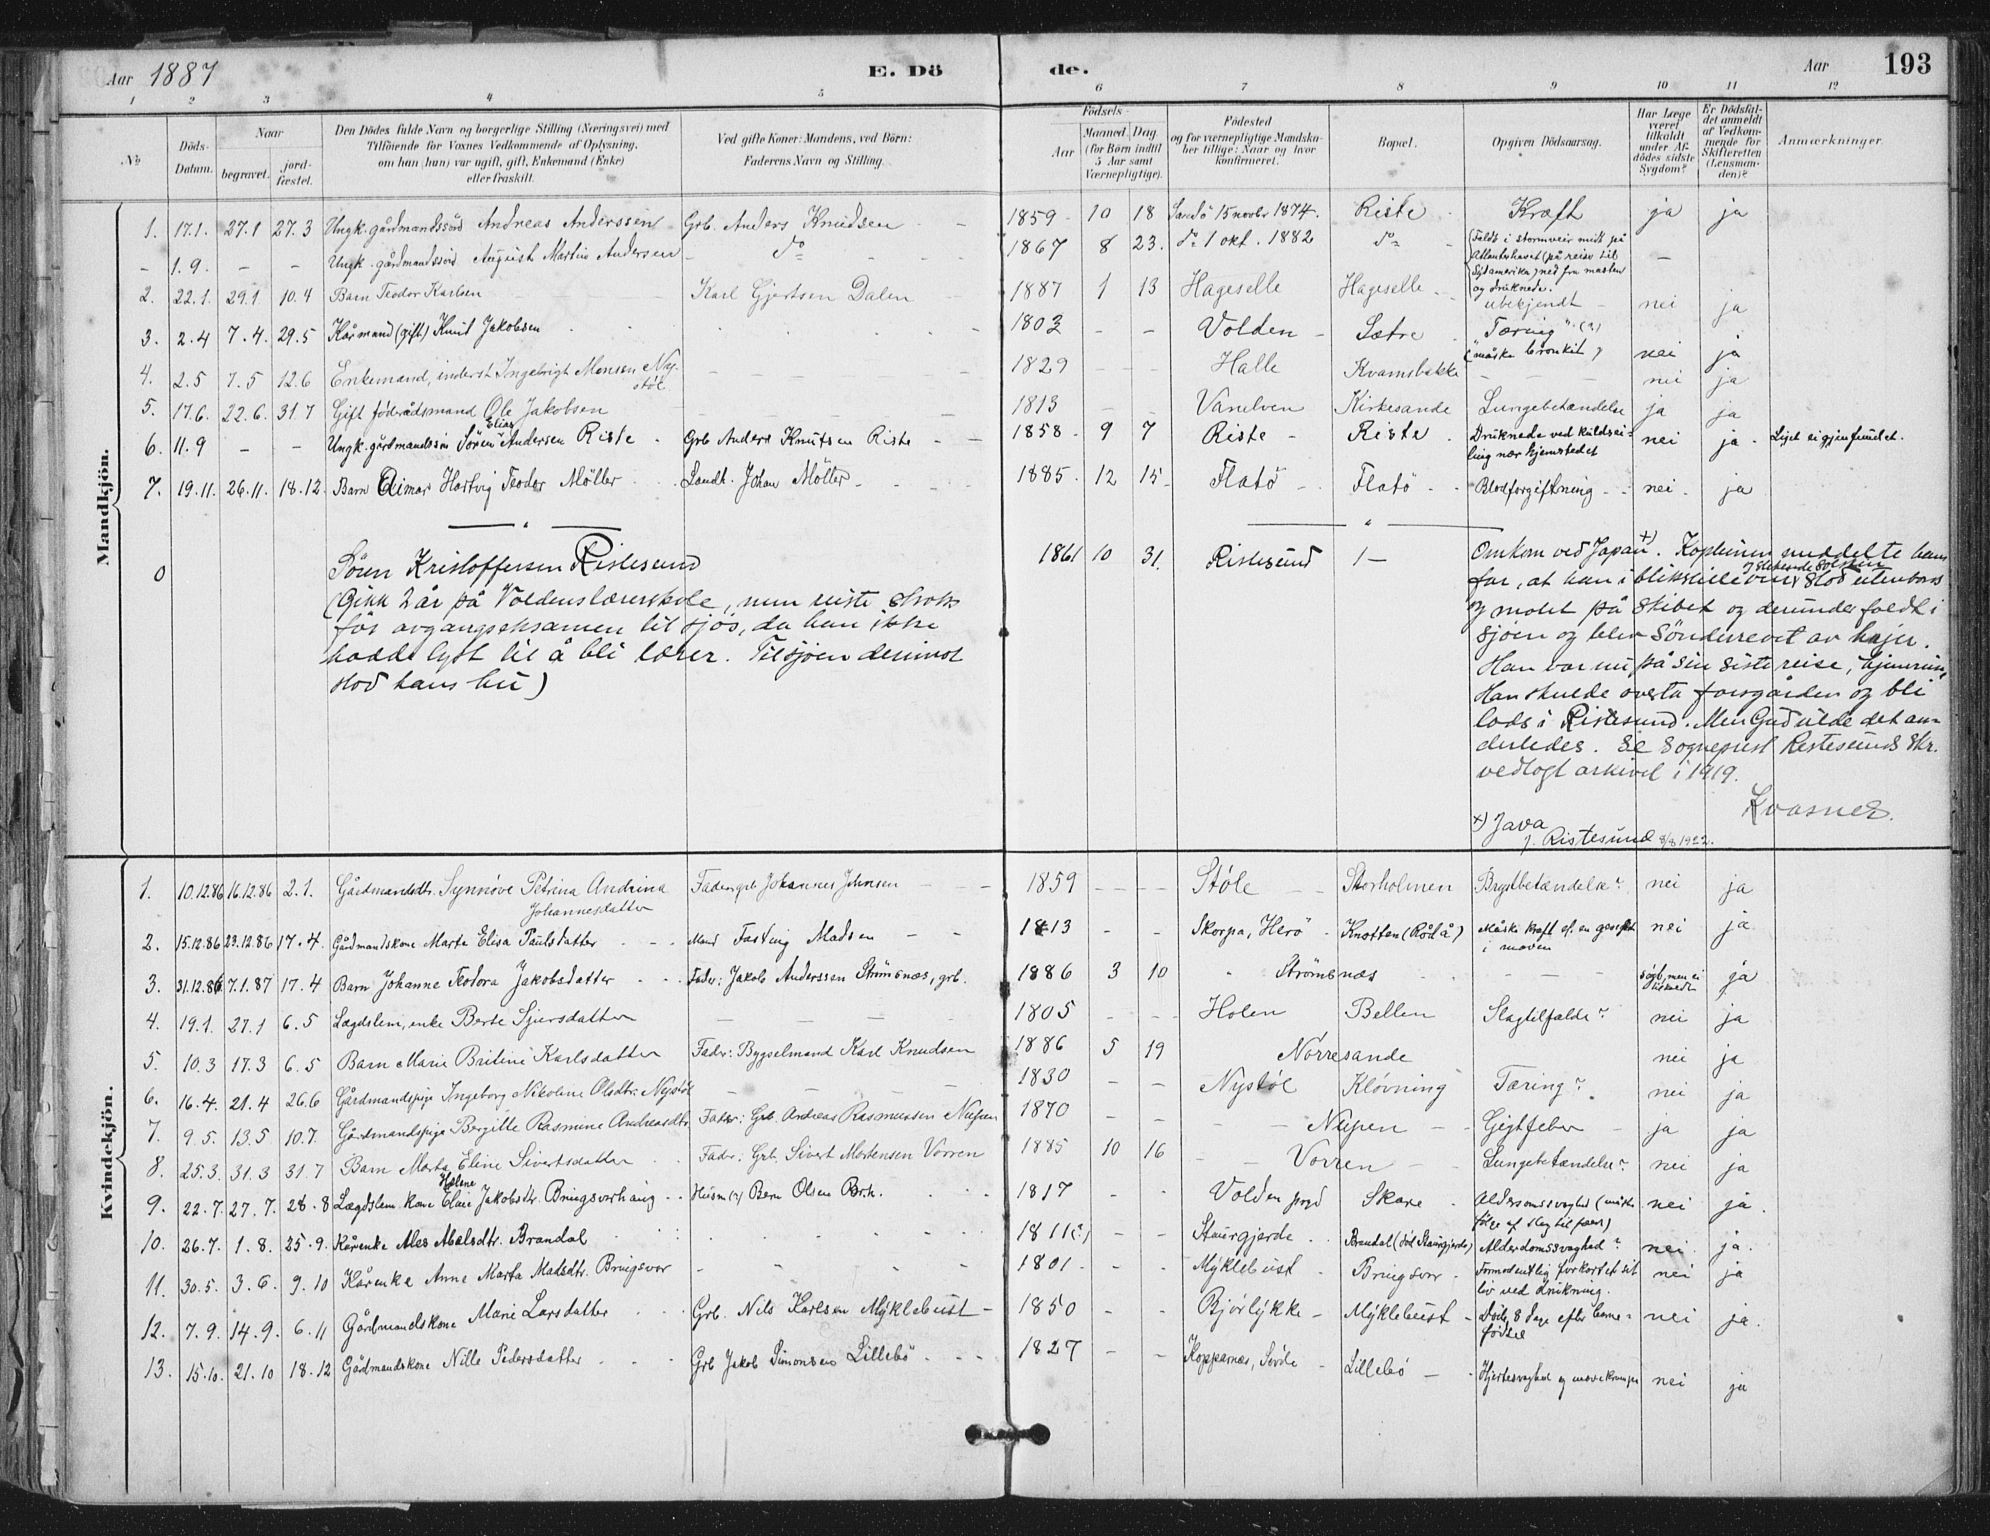 Aar 1887
E. Dö
de.
Aar
193
1 2 3 4 5 6 7 8 9 10 11 12
No
Döds-Datum.
Naar
begravet.
jord-fæstet.
Den Dödes fulde Navn og borgerlige Stilling (Næringsvei) med
Tilföiende for Voxnes Vedkommende af Oplysning,
om han (hun) var ugift, gift, Enkemand (Enke)
eller fraskilt.
Ved gifte Koner: Mandens, ved Börn:
Faderens Navn og Stilling.
Födsels-
Aar
Maaned. Dag.
(for Börn indtil
5 Aar samt
Værnepligtige).
Födested
og for værnepligtige Mandska-
ber tillige: Naar og hvor
konfirmeret.
Bopæl.
Opgiven Dödsaarsag.
Har Læge
været
tilkaldt
under Af-
dödes sidste
Sygdom?
Er Dödsfal-
det anmeldt
af Vedkom-
mende for
Skifteretten
(Lensman-
den)?
Anmærkninger.
Mandkjön.
1. 17.1. 27.1 27.3 Ungk. gårdmandssöd Andreas Anderssen Grb. Anders Knudsen 1859 10 18 Sandö 15 novbr 1874. Riste Kræft ja ja
1.9. Ungk. gårdmandssöd August Martin Andersen do 1867 8 23. do 1 okt. 1882 do (Faldt i stormveir midt på
Atlanterhavet (på reise til
Sydamerika) ned fra masten
og druknede.
2. 22.1. 29.1 10.4 Barn Teodor Karlsen Karl Gjertsen Dalen 1887 1 13 Hageselle Hageselle ubekjendt nei ja
3. 2.4 7.4. 29.5 Kårmand (gift) Knut Jakobsen 1803 Volden Sætre "Tæring" (?)
(måske bronkit) nei ja
4. 2.5 7.5 12.6 Enkemand, inderst Ingebrigt Monsen Ny-
støl 1829 Halle Kvamsbakke nei ja
5. 17.6. 22.6. 31.7 Gift föderådsmand Ole Jakobsen 1813 Vanelven Kirkesande Lungebetændelse ja ja
6. 11.9 Ungk. gårdmandssön Sören Elias Andersen Riste Grb Anders Knutsen Riste 1858 9 7 Riste Riste Druknede ved kuldsei-
ling nær hjemstedet nei ja Liget ei gjenfundet.
7. 19.11. 26.11. 18.12. Barn Elimar Hartvig Teodor Möller Landh. Johan Möller 1885. 12 15 Flatö Flatö Blodforgiftning nei ja
0 Sören Kristoffersen Ristesund 1861 10 31. Ristesund
(Gikk 2 år på Voldens lærerskole, men reiste straks
för avgangseksamen til sjös, da han ikke
hadde lyst til å bli lærer. Til sjöen derimot
stod hans hu)
Omkom ved Japan x). Kapteinen meddelte hans
far, at han i blikstille og stekende solskin stod utenbords
og malet på skibet og derunder faldt i
sjöen og blev sönderrevet av hajer.
Han var nu på sin siste reise, hjemreise,
Han skulde overta farsgården og bli
lods i Ristesund. Men Gud vilde det an-
derledes. Se sogneprest Ristesunds skr.
vedlagt arkivet i 1919.
Kvasnes.
x) Java
J. Ristesund 8/8 1922.
Kvindekjön.
1. 10.12.86 16.12.86 2.1. Gårdmandsdtr. Synnöve Petrina Andrina
Johannesdatter Fader: grb Johannes Johnsen 1859 Støle Storholmen Brystbetændelse? nei ja
2. 15.12.86 23.12.86 17.4. Gårdmandskone Marta Elisa Paulsdatter Mand Fasting Madsen 1813 Skorpa, Herö Knotten (Rödå) Måske kræft el. en gesvulst
i maven nei ja
3. 31.12.86 7.1.87 17.4 Barn Johanne Teodora Jakobsdatter Fader: Jakob Anderssen Strömsnæs, grb. 1886 3 10 Strömsnæs sögt, men ei ja
4. 19.1. 27.1 6.5 Lægdslem, enke Berte Sjursdatter 1805 Holen Bellen Slagtilfælde? nei ja
5. 10.3 17.3 6.5 Barn Marie Britine Karlsdatter Fader: Bygselmand Karl Knudsen 1886 5 19 Nörresande nei ja
6. 16.4. 21.4 26.6 Gårdmandspige Ingeborg Nikoline Olsdtr. Nystöl 1830 Nystöl Klövning Tæring? nei ja
7. 9.5. 13.5 10.7. Gårdmandspige Bergitte Rasmine Andreasdtr Fader: Grb. Andreas Rasmussen Nupen 1870 Nupen Gigtfeber ja ja
8. 25.3. 31.3 31.7 Barn Marta Eline Sivertsdatter Fader: Grb. Sivert Mortensen Vorren 1885 10 16 Vorren Lungebetændelse? nei ja
9. 22.7. 27.7. 28.8 Lægdslem kone Elen Helene Jakobsdtr. Bringsvorhaug Husm (?) Bern Olsen 1817 Volden prgd Skare Aldersomssvaghed (måske
fölge af slagtilfæld) nei ja
10. 26.7. 1.8. 25.9. Kårenke Ales Abelsdtr. Brandal 1811 (?) Staurgjerde Brandal (död Staurgjerde) Alderdomssvaghed? nei ja.
11. 30.5. 3.6. 9.10 Kårenke Anne Marta Madsdtr. Bringsvor 1801 Myklebust Bringsvor Formodentlig forkortet sit
liv ved drukning. nei ja
12. 7.9. 14.9. 6.11 Gårdmandskone Marie Larsdatter Grb. Nils Karlsen Myklebust 1850 Bjørlykke Myklebust Döde 8 dage efter barne-
födsel nei ja.
13. 15.10. 21.10 18.12 Gårdmandskone Nille Pedersdatter Grb Jakob Simonsen Lillebö 1827 Kopparnes, Sövde Lillebö Hjertesvaghed og mavekrampe nei ja